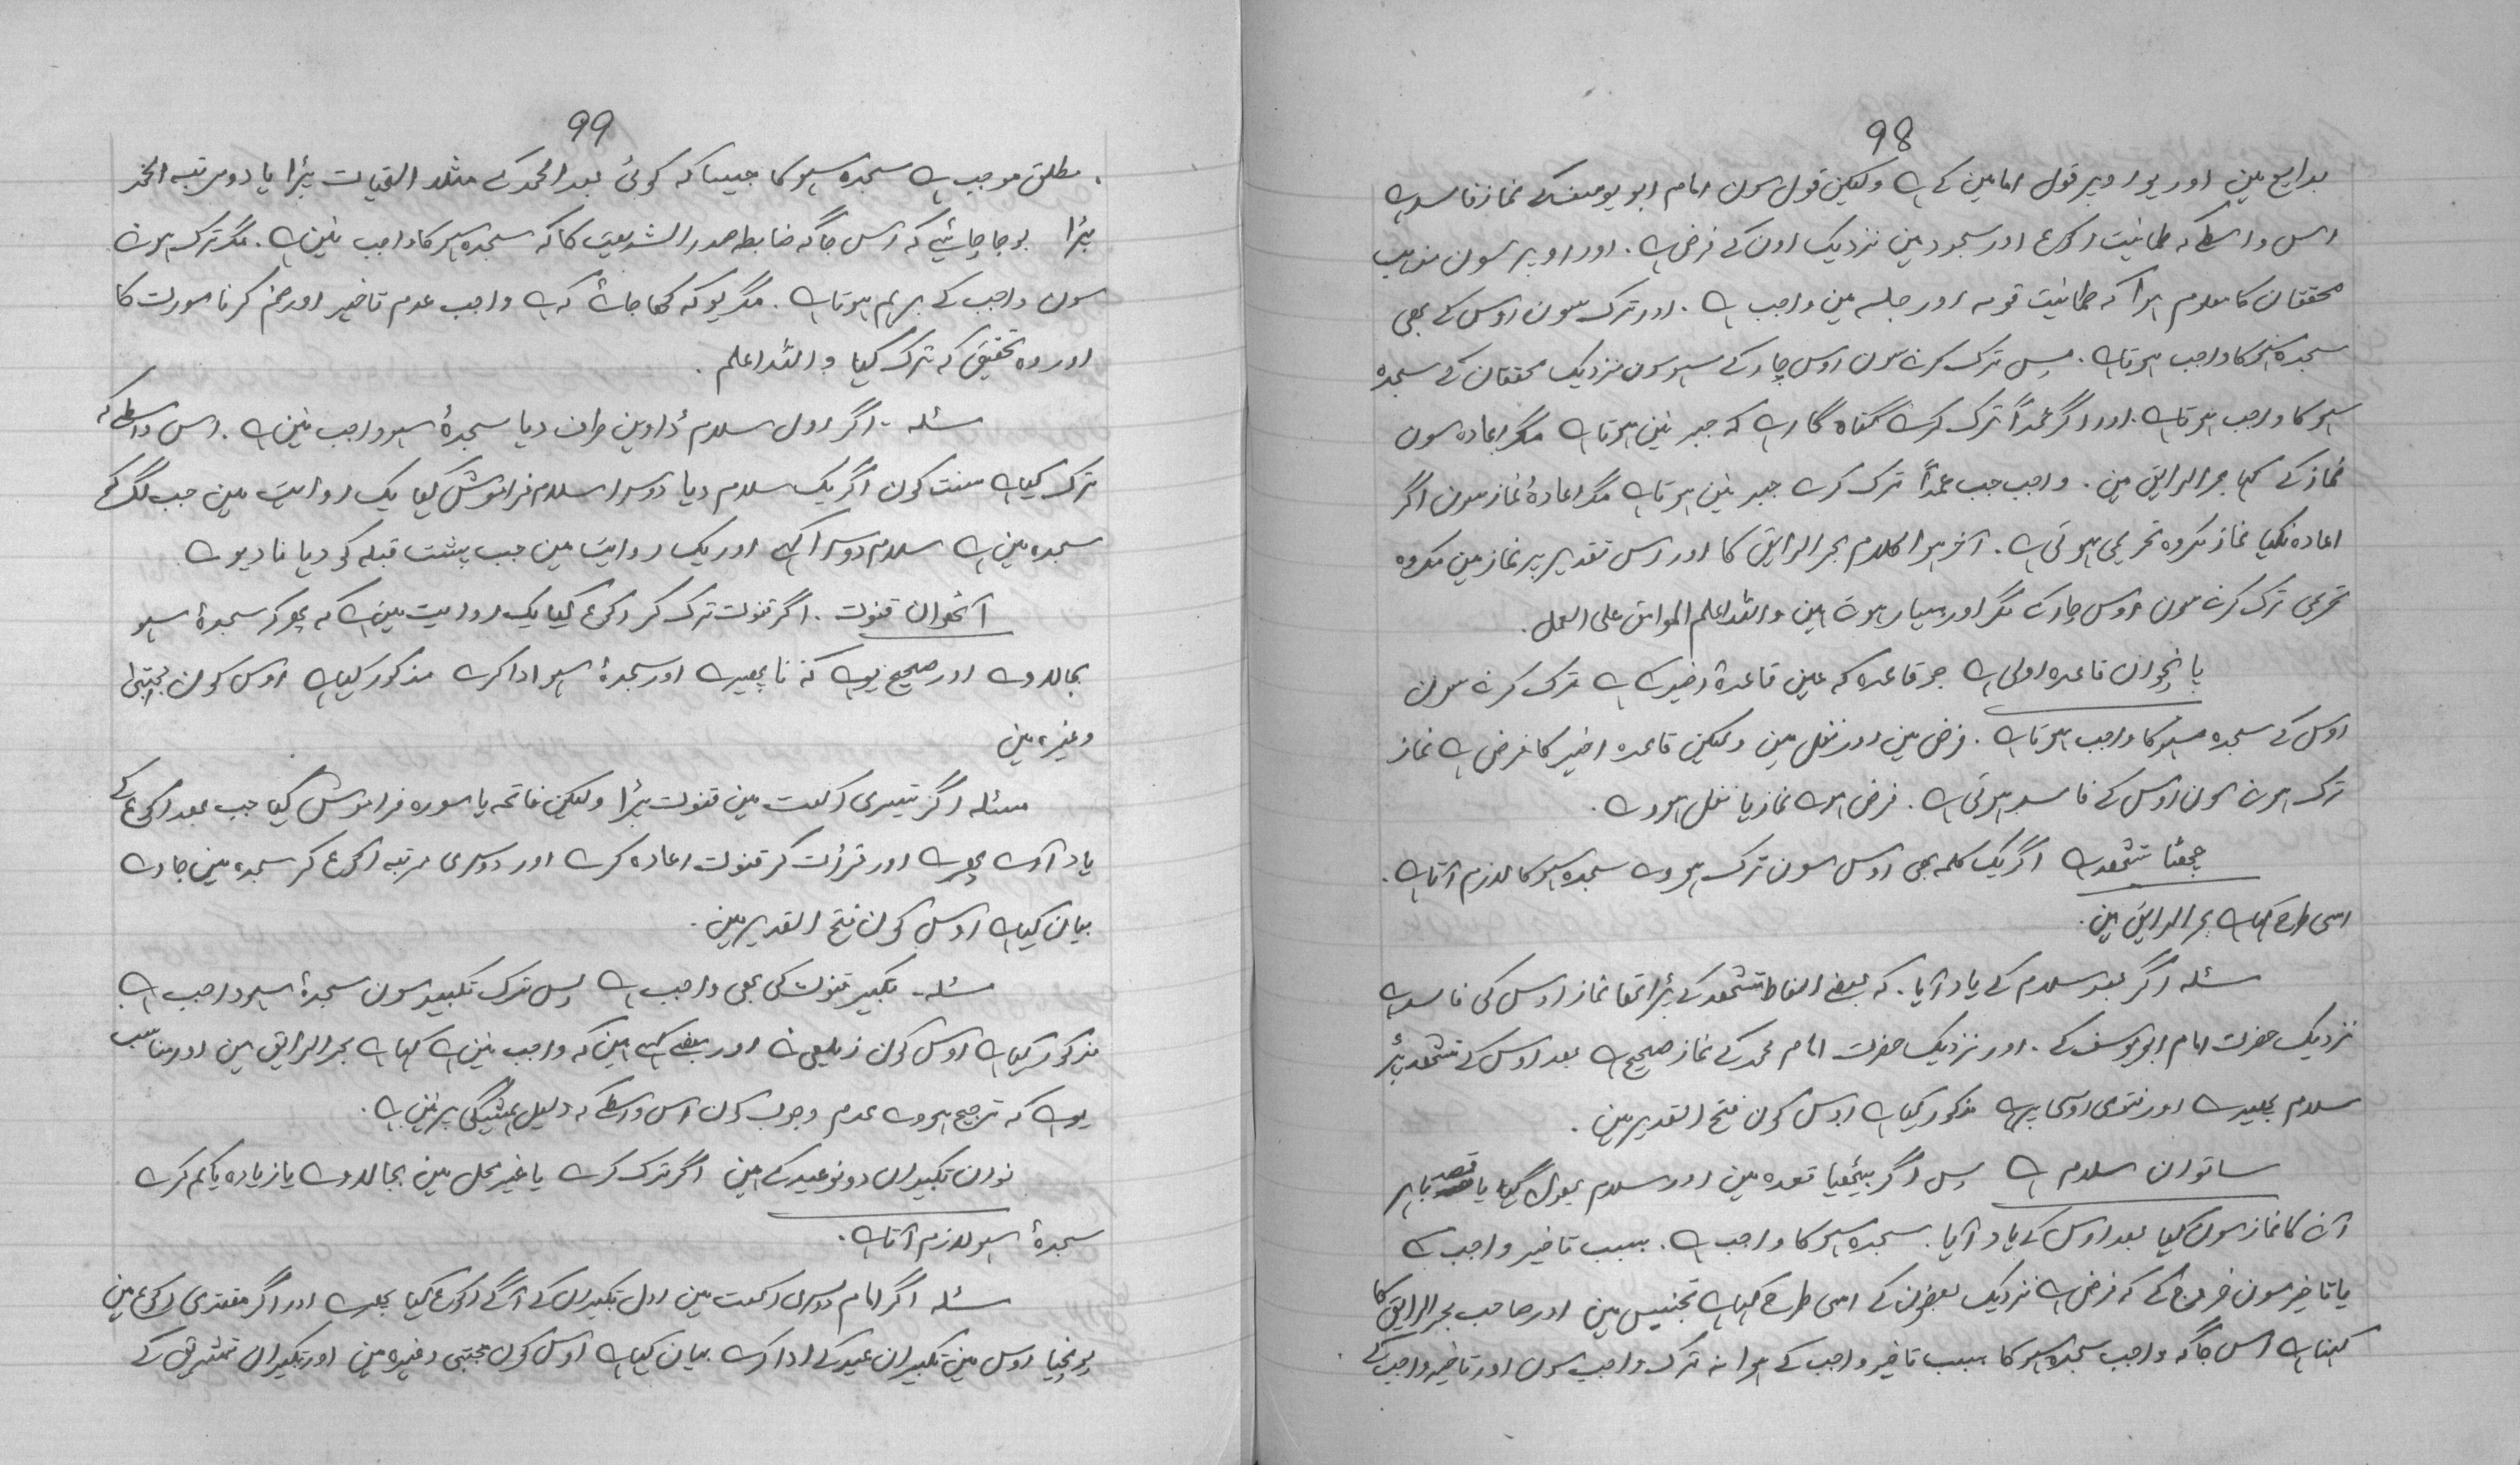 98
بدایع مین اور یو اوپر قول امامین کے ہے ولیکن قول سون امام ابو یوسف کے نماز فاسد ہے
اس واسطے کہ طمانیت رکوع اور سجود مین نزدیک اون کے فرض ہے . اور اوپر سون مذہب
محققان کا معلوم ہوا کہ طمانیت قومہ اور جلسہ مین واجب ہے . اور ترک سون اوس کے بھی
سجدہ سہو کا واجب ہوتا ہے . پس ترک کرنے سون اوس چار کے سہو سون نزدیک محققان کے سجدہ
سہو کا واجب ہوتا ہے . اور اگر عمداً ترک کرے گناہ گار ہے کہ جبر نین ہوتا ہے مگر اعادہ سون
نماز کے کہیا بحر الرایق مین . واجب جب عمداً ترک کرے جبر نین ہوتا ہے مگر اعادۂ نماز سون اگر
اعادہ نکیا نماز مکروہ تحریمی ہوتی ہے . آخر ہوا کلام بحر الرایق کا اور اس تقدیر پر نماز مین مکروہ
تحریمی ترک کرنے سون اوس چار کے مگر اور بسیار ہوتے ہین واللہ اعلم الموافق علی العمل .
پانچوان قاعدہ اولی ہے جو قاعدہ کہ عین قاعدۂ اخیر کا ہے ترک کرنے سون
اوس کے سجدہ سہو کا واجب ہوتا ہے . فرض مین اور نفل مین ولیکن قاعدہ اخیر کا فرض ہے نماز
ترک ہونے سون اوس کے فاسد ہوتی ہے . فرض ہوے نماز یا نفل ہووے .
چھٹا تشھد ہے اگر یک کلمہ بھی اوس سون ترک ہووے سجدہ سہو کا لازم آتا ہے .
اسی طرح کہا ہے بحر الرایق مین .
مسئلہ اگر بعد سلام کے یاد آیا . کہ بعضے الفاظ تشھد کے پڑا تھا نماز اوس کی فاسد ہے
نزدیک حضرت امام ابو یوسف کے . اور نزدیک حضرت امام محمد کے نماز صحیح ہے بعد اوس کے تشھد پڑ
سلام پھیرے اور فتوی اوسی پر ہے مذکور کیا ہے اوس کون فتح القدیر مین .
ساتوان سلام ہے پس اگر بیٹھیا قعدہ مین اور سلام بھول گیا یا قصد باہر
آنے کا نماز سون کیا بعد اوس کے یاد آیا . سجدہ سہو کا واجب ہے . بسبب تاخیر واجب کے
یا تاخیر سون خروج کے کہ فرض ہے نزدیک بعضون کے اسی طرح کہا ہے تجنیس مین اور صاحب بحر الرایق کا
کہتا ہے اس جاگہ واجب سجدہ سہو کا بسبب تاخیر واجب کے ہوا نہ ترک واجب سون اور تاخیر واجب کے .
99
مطلق موجب ہے سجدہ سہو کا جیسا کہ کوئی بعد الحمد کے مثلا التحیات پڑا یا دو مرتبہ الحمد
پڑا بوجا چاہئے کہ اس جاگہ ضابطہ صدر الشریعت کا کہ سجدہ سہو کا واجب نین ہے . مگر ترک ہونے
سون واجب کے برہم ہوتا ہے . مگر یو کہ کہا جاے کہ واجب عدم تاخیر اور ضم کرنا سورت کا
اور وہ تحقیق کہ ترک کیا واللہ اعلم .
مسئلہ - اگر اول سلام ڈاوین طرف دیا سجدۂ سہو واجب نین ہے . اس واسطے کہ
ترک کیا ہے سنت کون اگر یک سلام دیا دوسرا سلام فراموش کیا یک روایت مین جب لگ کہ
سجدہ مین ہے سلام دوسرا کہے اور یک روایت مین جب پشت قبلہ کو دیا نا دیوے
آٹھوان قنوت . اگر قنوت ترک کر رکوع کیا یک روایت مین ہے کہ پھر کر سجدۂ سہو
بجا لاوے اور صحیح یو ہے کہ نا پھیرے اور سجدۂ سہو ادا کرے مذکور کیا ہے اوس کون مجتبی
وغیرہ مین
مسئلہ اگر تیسری رکعت مین قنوت پڑا ولیکن فاتحہ یا سورہ فراموش کیا جب بعد رکوع کے
یاد آوے پھرے اور قرأت کر قنوت اعادہ کرے اور دوسری مرتبہ رکوع کر سجدہ مین جاوے
بیان کیا ہے اوس کون فتح القدیر مین .
مسئلہ - تکبیر قنوت کی بھی واجب ہے پس ترک تکبیر سون سجدۂ سہو واجب ہے
مذکور کیا ہے اوس کون زیلعی نے اور بعضے کہے ہین کہ واجب نین ہے کہا ہے بحر الرایق مین اور مناسب
یو ہے کہ ترجیح ہووے عدم وجوب کون اس واسطے کہ دلیل ہمیشگی پر نین ہے .
نوان تکبیران دونو عید کے ہین اگر ترک کرے یا غیر محل مین بجا لاوے یا زیادہ یا کم کرے
سجدۂ سہو لازم آتا ہے .
مسئلہ اگر امام دوسری رکعت مین اول تکبیران کے آگے رکوع کیا پھرے اور اگر مقتدی رکوع مین
پونچیا اوس مین تکبیران عید کے ادا کرے بیان کیا ہے اوس کون مجتبی وغیرہ مین اور تکبیران تشریق کے